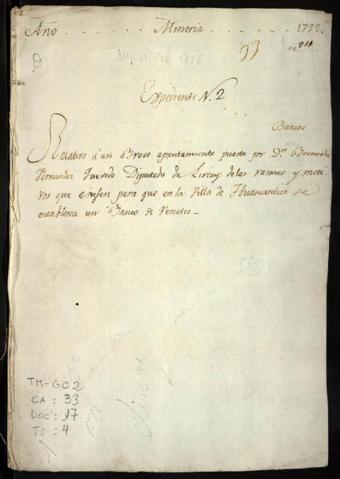 Año . . . . . Mineria . . . . . 1792.
93
Expediente N. 2
Bancos
Relativo à un Breve apuntamiento puesto por Dn. Bernardo
Fernandez Diputado de Lircay de las razones y moti
vos que para que en la Villa de Huancavelica se
establesca un Banco de Rescates
TM-GO2
CA : 33
DOC : 17
FS : 4